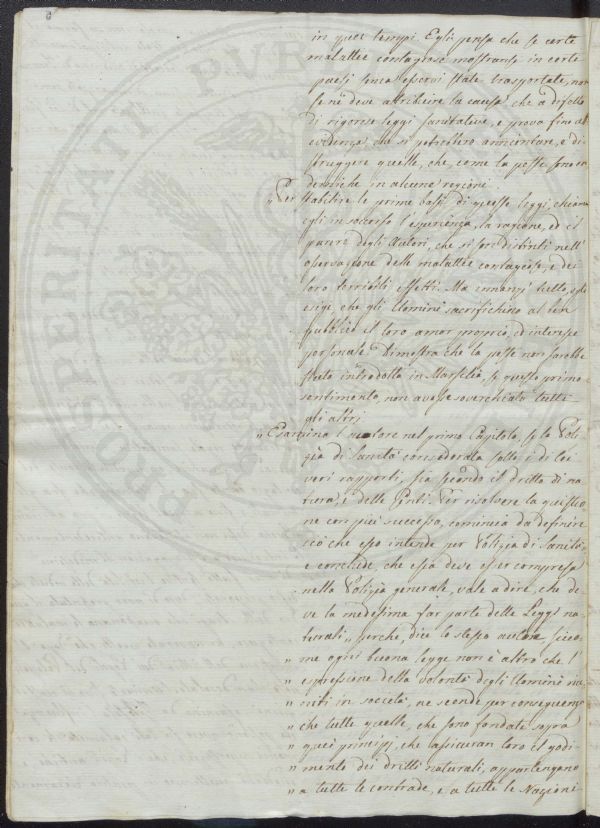 5
PROSPERITATI PVB
in quei tempi. Egli pensa che se certe
malattie contagiose mostransi in certe
paesi senza esservi state trasportate, non
se ne deve attribuire la causa che a difetto
di rigorose leggi sanitarie, e prova fino all'
evidenza, che si potrebbero annientare, e di-
struggere quelle, che, come la peste sono en-
demiche in alcune regioni.
„ Per stabilire le prime basi di queste leggi, chiama
egli in soccorso l'esperienza, la ragione, ed il
parere degli Autori, che si son distinti nell'
osservazione delle malattie contagiose, e dei
loro terribili effetti. Ma innanzi tutto, egli
esige, che gli Uomini sacrifichino al ben
pubblico il loro amor proprio, ed interesse
personale. Dimostra che la peste non sarebbe
stata introdotta in Marsilia, se questo primo
sentimento, non avesse soverchiati tutti
gli altri.
„ Esamina l'autore nel primo Capitolo, se la Poli-
zia di Sanità considerata sotto i di lei
veri rapporti, sia secondo il dritto di na-
tura, e delle Genti. Per risolvere la questio-
ne con più successo, comincia da definire
ciò che esso intende per Polizia di Sanità,
e conclude, che essa deve esser compresa
nella Polizia generale, vale a dire, che de-
ve la medesima far parte delle Leggi na-
turali „ perchè, dice lo stesso autore sicco-
„ me ogni buona legge non è altro che l'
„ espressione della volontà degli Uomini riu-
„ niti in società, ne scende per conseguenza
„ che tutte quelle, che sono fondate sopra
„ quei principj, che assicuran loro il godi-
„ mento dei dritti naturali, appartengono
„ a tutte le contrade, e a tutte le Nazioni